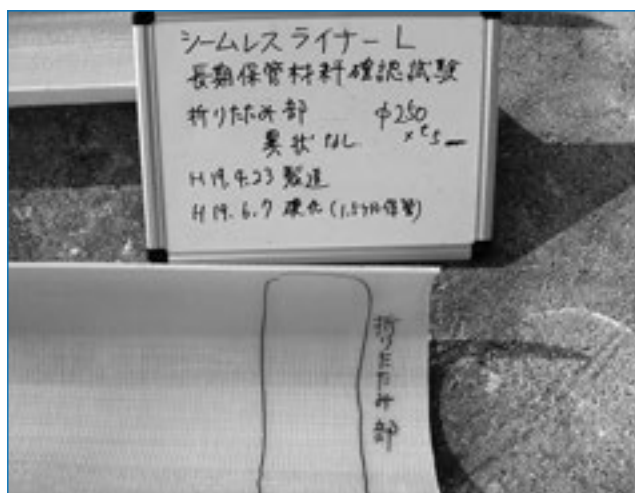 シームレスライナーL
長期保管材料確認試験
折りたたみ部 φ250
異状なし ×t5
H19.4.23 製造
H19.6.7 硬化(1.5ヶ月保管)
折りたたみ部